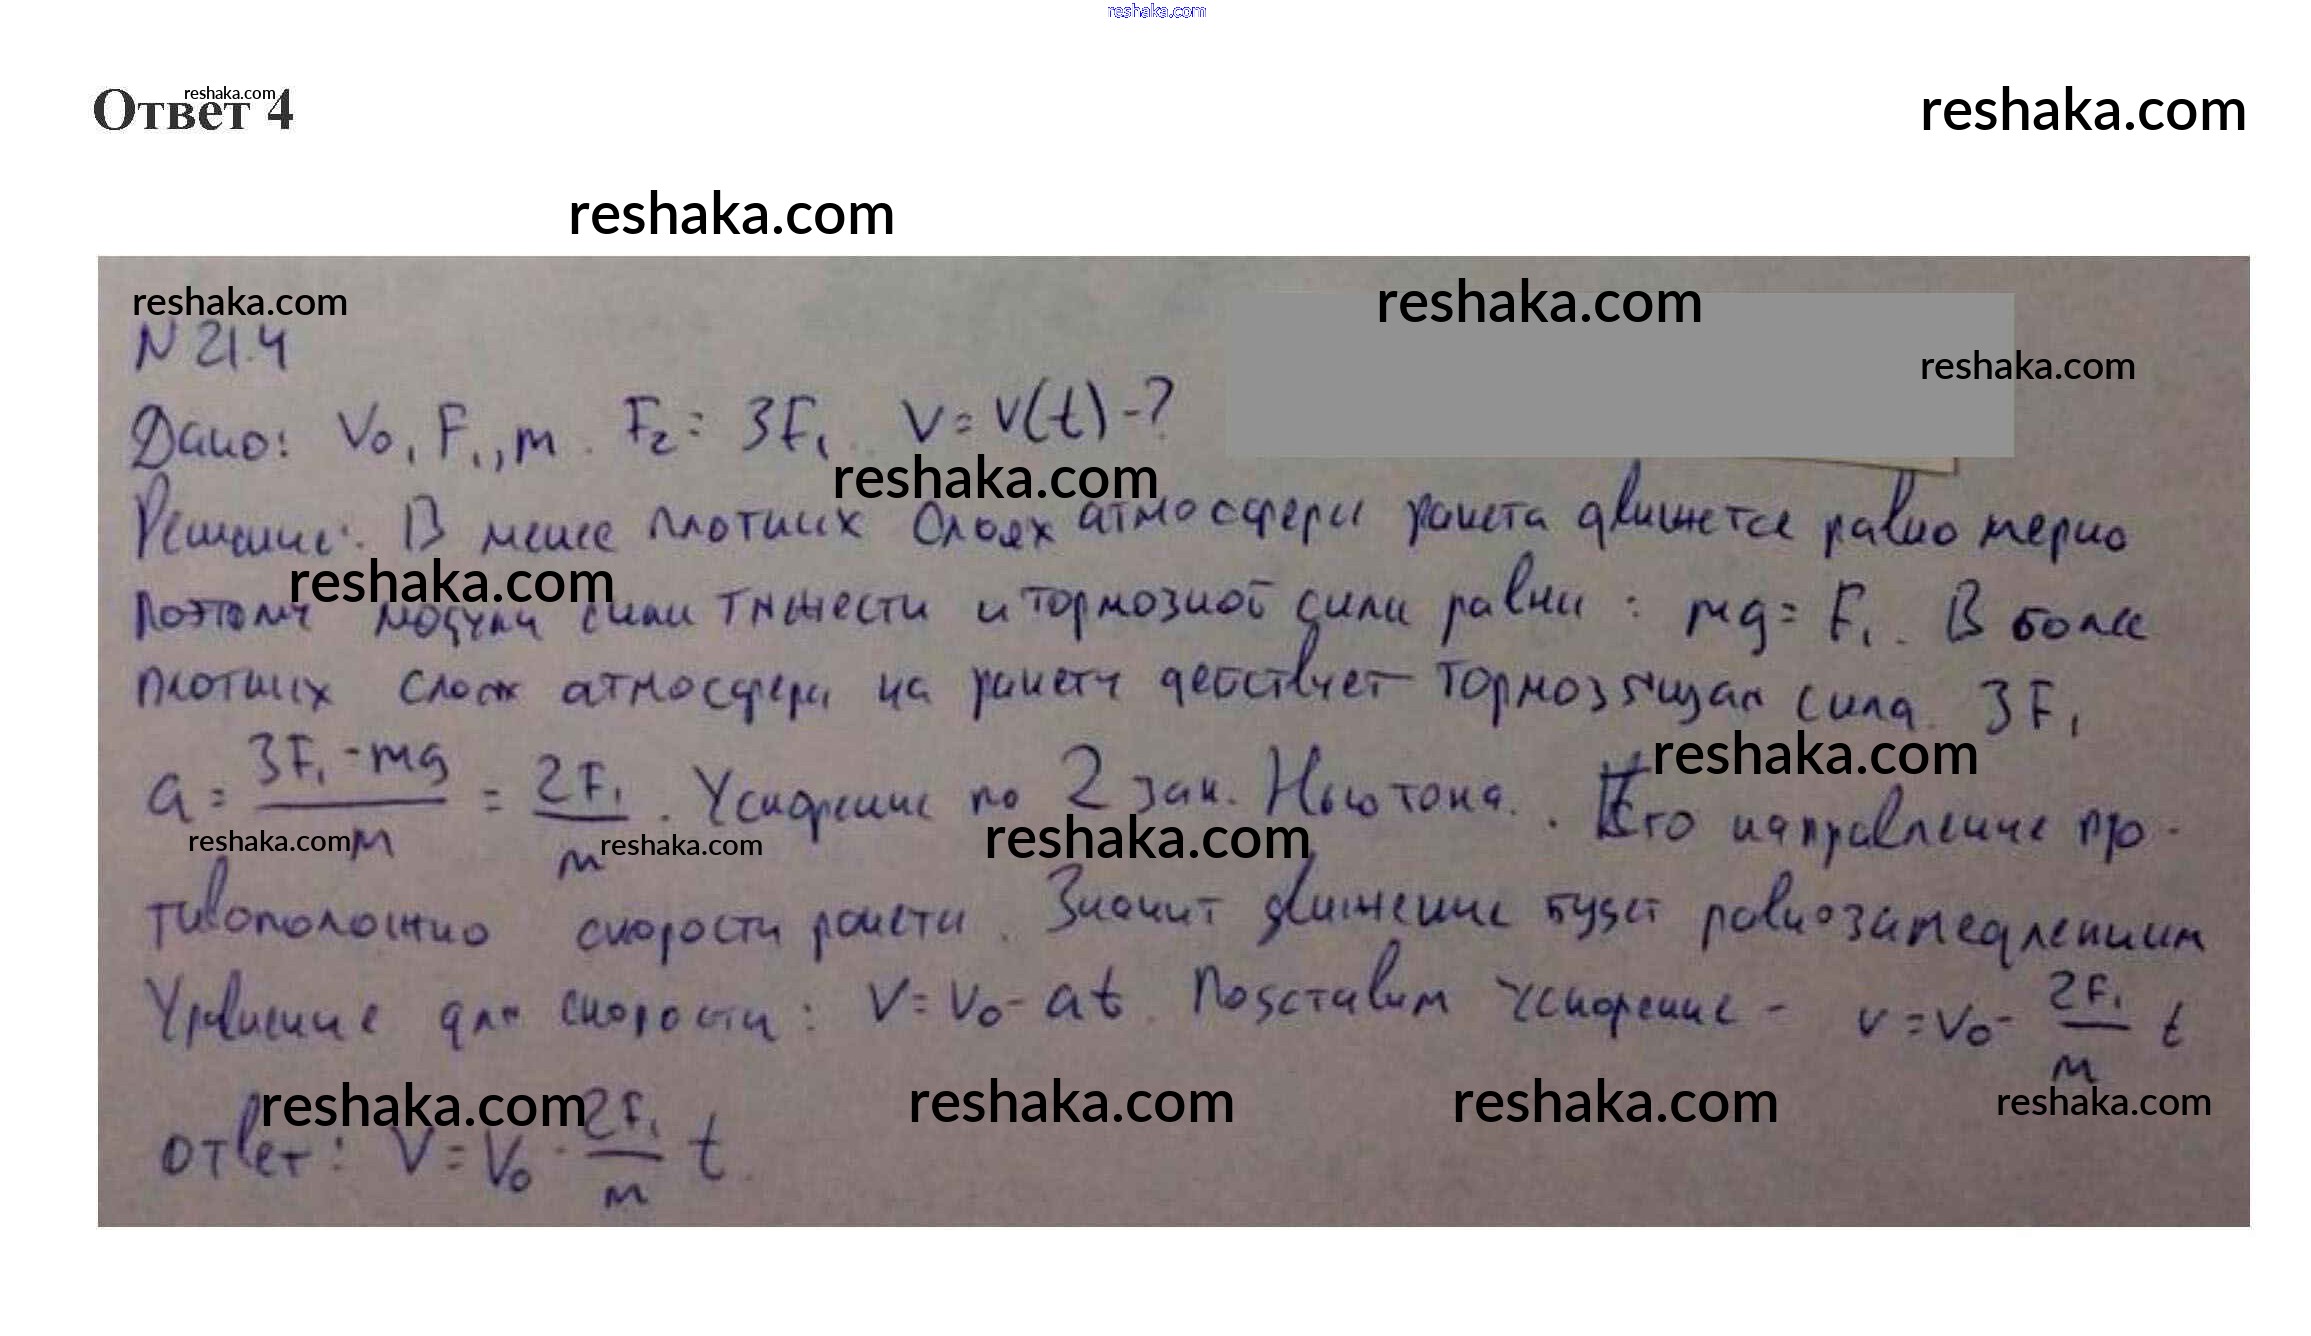 reshaka.com
Ответ 4
reshaka.com
reshaka.com
reshaka.com
reshaka.com
reshaka.com
N 21.4
reshaka.com
Дано: V₀, F₁, m. F₂ = 3F₁. V = V(t) - ?
reshaka.com
Решение: В менее плотных слоях атмосферы ракета движется равномерно
reshaka.com
поэтому модули силы тяжести и тормозной силы равны : mg = F₁. В более
плотных слоях атмосферы на ракету действует тормозящая сила 3F₁
reshaka.com
a = (3F₁ - mg)/m = 2F₁/m. Ускорение по 2 зак. Ньютона. Его направление про-
reshaka.com reshaka.com reshaka.com
тивоположно скорости ракеты. Значит движение будет равнозамедленным
Уравнение для скорости: V = V₀ - at. Подставим ускорение - V = V₀ - 2F₁/m t
reshaka.com reshaka.com reshaka.com reshaka.com
ответ: V = V₀ - 2F₁/m t.